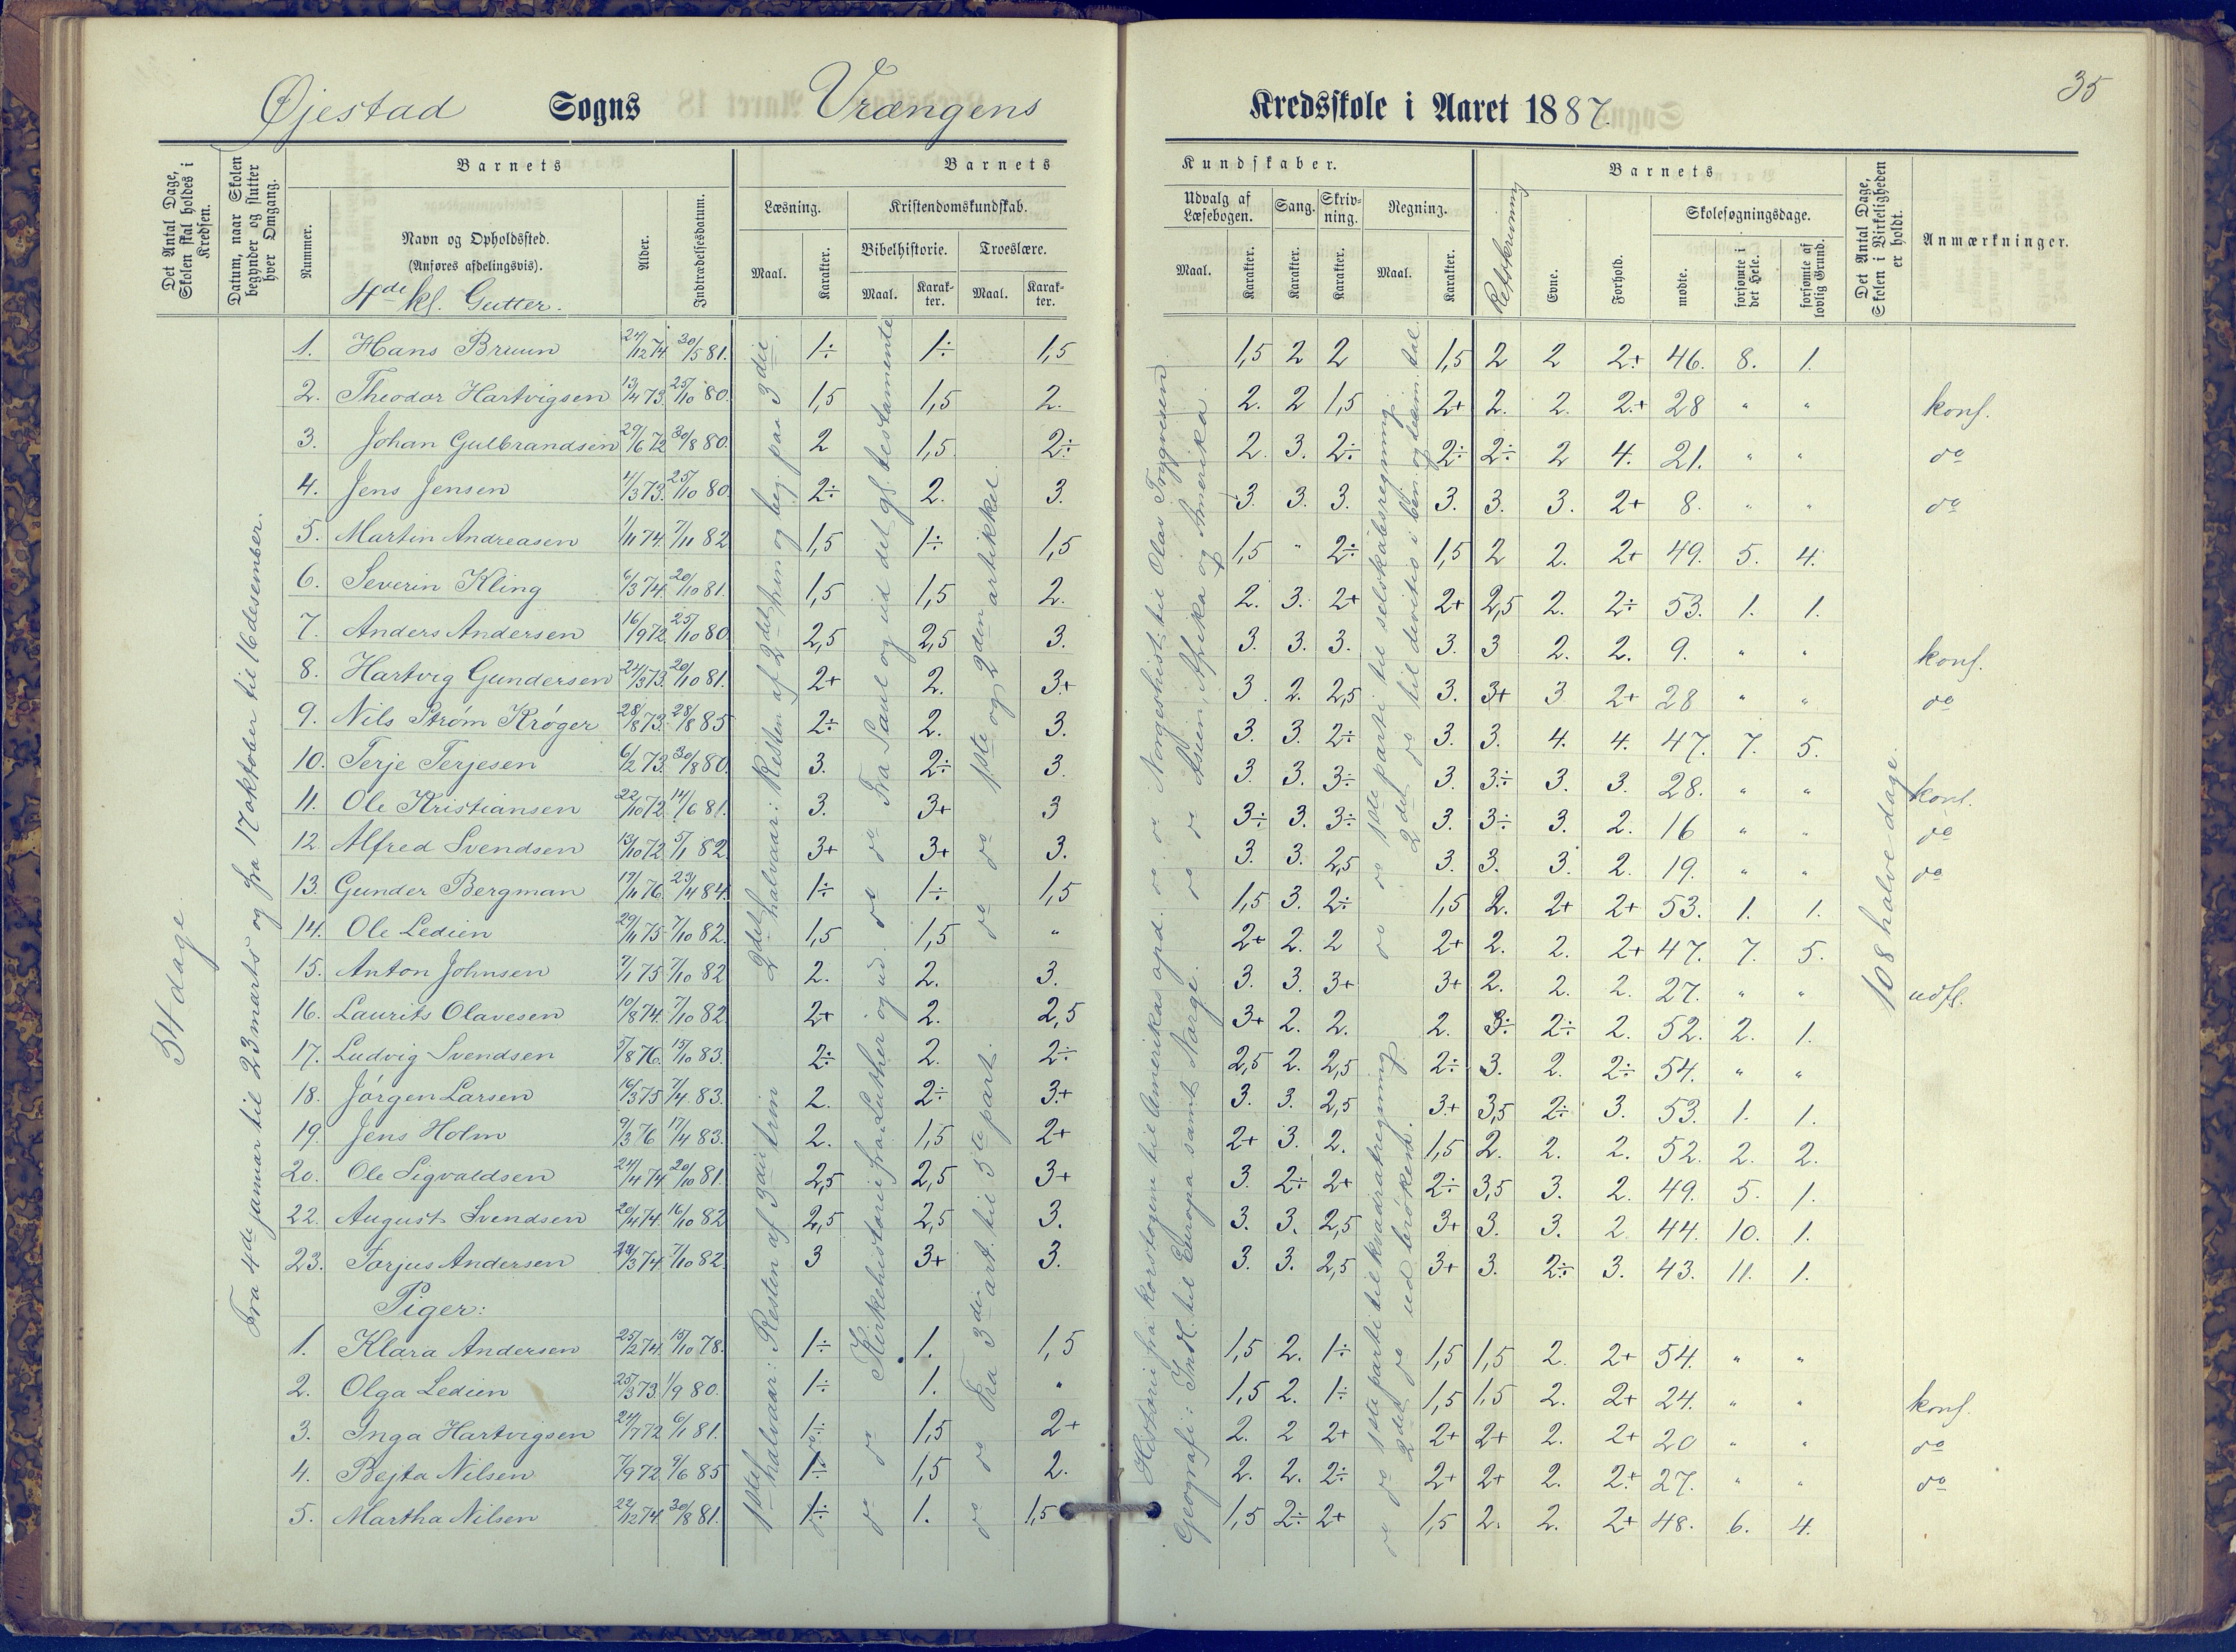 35
Øjestad Sogns Vrængens Kredsskole i Aaret 1887.
Det Antal Dage, Skolen skal holdes i Kredsen.
Datum, naar Skolen begynder og slutter hver Omgang.
Barnets
Nummer.
Navn og Opholdssted.
(Anføres afdelingsvis).
4de kl. Gutter.
Alder.
Indtrædelsesdatum.
Barnets Kundskaber.
Læsning.
Maal. Karakter.
Kristendomskundskab.
Bibelhistorie. Troeslære.
Maal. Karakter. Maal. Karakter.
Udvalg af Læsebogen. Sang. Skrivning. Regning.
Maal. Karakter. Karakter. Karakter. Maal. Karakter.
Retskrivning
Barnets
Evne. Forhold.
Skolesøgningsdage.
mødte. forsømte i det Hele. forsømte af lovlig Grund.
Det Antal Dage, Skolen i Virkeligheden er holdt.
Anmærkninger.
54 dage
Fra 4de januar til 23 marts og fra 17 oktober til 16 desember.
2det halvaar: Resten af 2det trin og beg. paa 3die
1ste halvaar: Resten af 3die trin
do do Fra Saul og ud det gl. testamente
do do Kirkehistorie fra Luther og ud.
do do 1ste og 2den artikkel
do do Fra 3die art. til 5te part.
Historie fra korstogene til Amerikas opd. do do Norgeshist. til Olav Tryggvesen
Geografi: Indl. til Europa samt Norge. do do Asien, Afrika og Amerika
do do 1ste parti til kvadratregning do do 1ste parti til selskabsregning
2det do ud brøkene. 2det do til divitis i ben. og desim. tal.
108 halve dage
1. Hans Bruun 24/12 74 30/5 81. 1÷ 1÷ 1,5 1,5 2 2 1,5 2 2 2+ 46. 8. 1.
2. Theodor Hartvigsen 13/4 73. 25/10 80. 1,5 1,5 2. 2. 2 1,5 2+ 2. 2. 2+ 28 " " konf.
3. Johan Gulbrandsen 29/6 72 30/8 80. 2 1,5. 2÷ 2. 3. 2÷ 2÷ 2÷ 2 4. 21. " " do
4. Jens Jensen 4/3 73. 25/10 80. 2÷ 2. 3. 3. 3. 3. 3. 3. 3. 2+ 8. " " do
5. Martin Andreasen 1/11 74. 7/11 82 1,5 1÷ 1,5 1,5 " 2÷ 1,5 2 2. 2+ 49. 5. 4.
6. Severin Kling 6/3 74. 20/10 81. 1,5 1,5 2. 2. 3. 2+ 2+ 2,5 2. 2÷ 53. 1. 1.
7. Anders Andersen 16/9 72. 25/10 80 2,5 2,5 3. 3. 3. 3. 3. 3 2. 2. 9. " " konf.
8. Hartvig Gundersen 24/3 73. 20/10 81. 2+ 2. 3+ 3. 2. 2,5 3. 3+ 3 2+ 28 " " do
9. Nils Strøm Krøger 28/8 73. 28/8 85 2÷ 2. 3. 3. 3. 2÷ 3. 3. 4. 4. 47. 7. 5.
10. Terje Terjesen 6/2 73. 30/8 80. 3. 2÷ 3. 3. 3. 3÷ 3. 3÷ 3. 3. 28. " " konf.
11. Ole Kristiansen 22/10 72. 14/6 81. 3. 3+ 3 3÷ 3. 3÷ 3. 3÷ 3. 2. 16 " " do
12 Alfred Svendsen 13/10 72. 5/1 82. 3+ 3+ 3. 3. 3. 2,5 3. 3. 3. 2. 19. " " do
13. Gunder Bergman 17/11 76. 23/4 84. 1÷ 1÷ 1,5 1,5 3. 2÷ 1,5 2. 2+ 2+ 53. 1. 1.
14. Ole Ledien 29/11 75 7/10 82. 1,5 1,5 " 2+ 2. 2 2+ 2. 2. 2+ 47. 7. 5.
15. Anton Johnsen 7/1 75 7/10 82 2. 2. 3. 3. 3. 3+ 3+ 2. 2. 2. 27. " " udfl.
16. Laurits Olavesen 10/8 74. 7/10 82. 2+ 2. 2,5 3+ 2. 2. 2. 3÷ 2÷ 2. 52. 2. 1.
17. Ludvig Svendsen 5/8 76. 15/10 83. 2÷ 2. 2÷ 2,5 2. 2,5 2÷ 3. 2. 2÷ 54. " "
18. Jørgen Larsen 16/3 75 7/4 83. 2. 2÷ 3+ 3. 3. 2,5 3+ 3,5 2÷ 3. 53. 1. 1.
19. Jens Holm 9/3 76 17/4 83. 2. 1,5 2+ 2+ 3. 2. 1,5 2. 2. 2. 52. 2. 2.
20. Ole Sigvaldsen 24/4 74 20/10 81. 2,5 2,5 3+ 3. 2÷ 2+ 2÷ 3,5 3. 2. 49. 5. 1.
22. August Svendsen 20/4 74. 16/10 82 2,5 2,5 3. 3. 3. 2,5 3+ 3. 3. 2. 44. 10. 1.
23. Torjus Andersen 3 74. 7/10 82. 3 3+ 3. 3. 3. 2,5 3+ 3. 2÷ 3. 43. 11. 1.
Piger:
1. Klara Andersen 25/2 74. 15/10 78. 1÷ 1. 1,5 1,5 2. 1÷ 1,5 1,5 2. 2+ 54. " "
2. Olga Ledien 25/3 73. 1/9 80. 1÷ 1. " 1,5 2. 1÷ 1,5 1,5 2. 2+ 24. " " konf.
3. Inga Hartvigsen 24/7 72 6/1 81. 1÷ 1,5 2+ 2. 2 2+ 2+ 2+ 2. 2+ 20 " " do
4. Bejta Nilsen 7/9 72 9/6 85 1÷ 1,5 2. 2. 2. 2÷ 2+ 2+ 2. 2+ 27. " " do
5. Martha Nilsen 22/12 74 30/8 81. 1÷ 1. 1,5 1,5 2÷ 2+ 1,5 2. 2. 2+ 48. 6. 4.